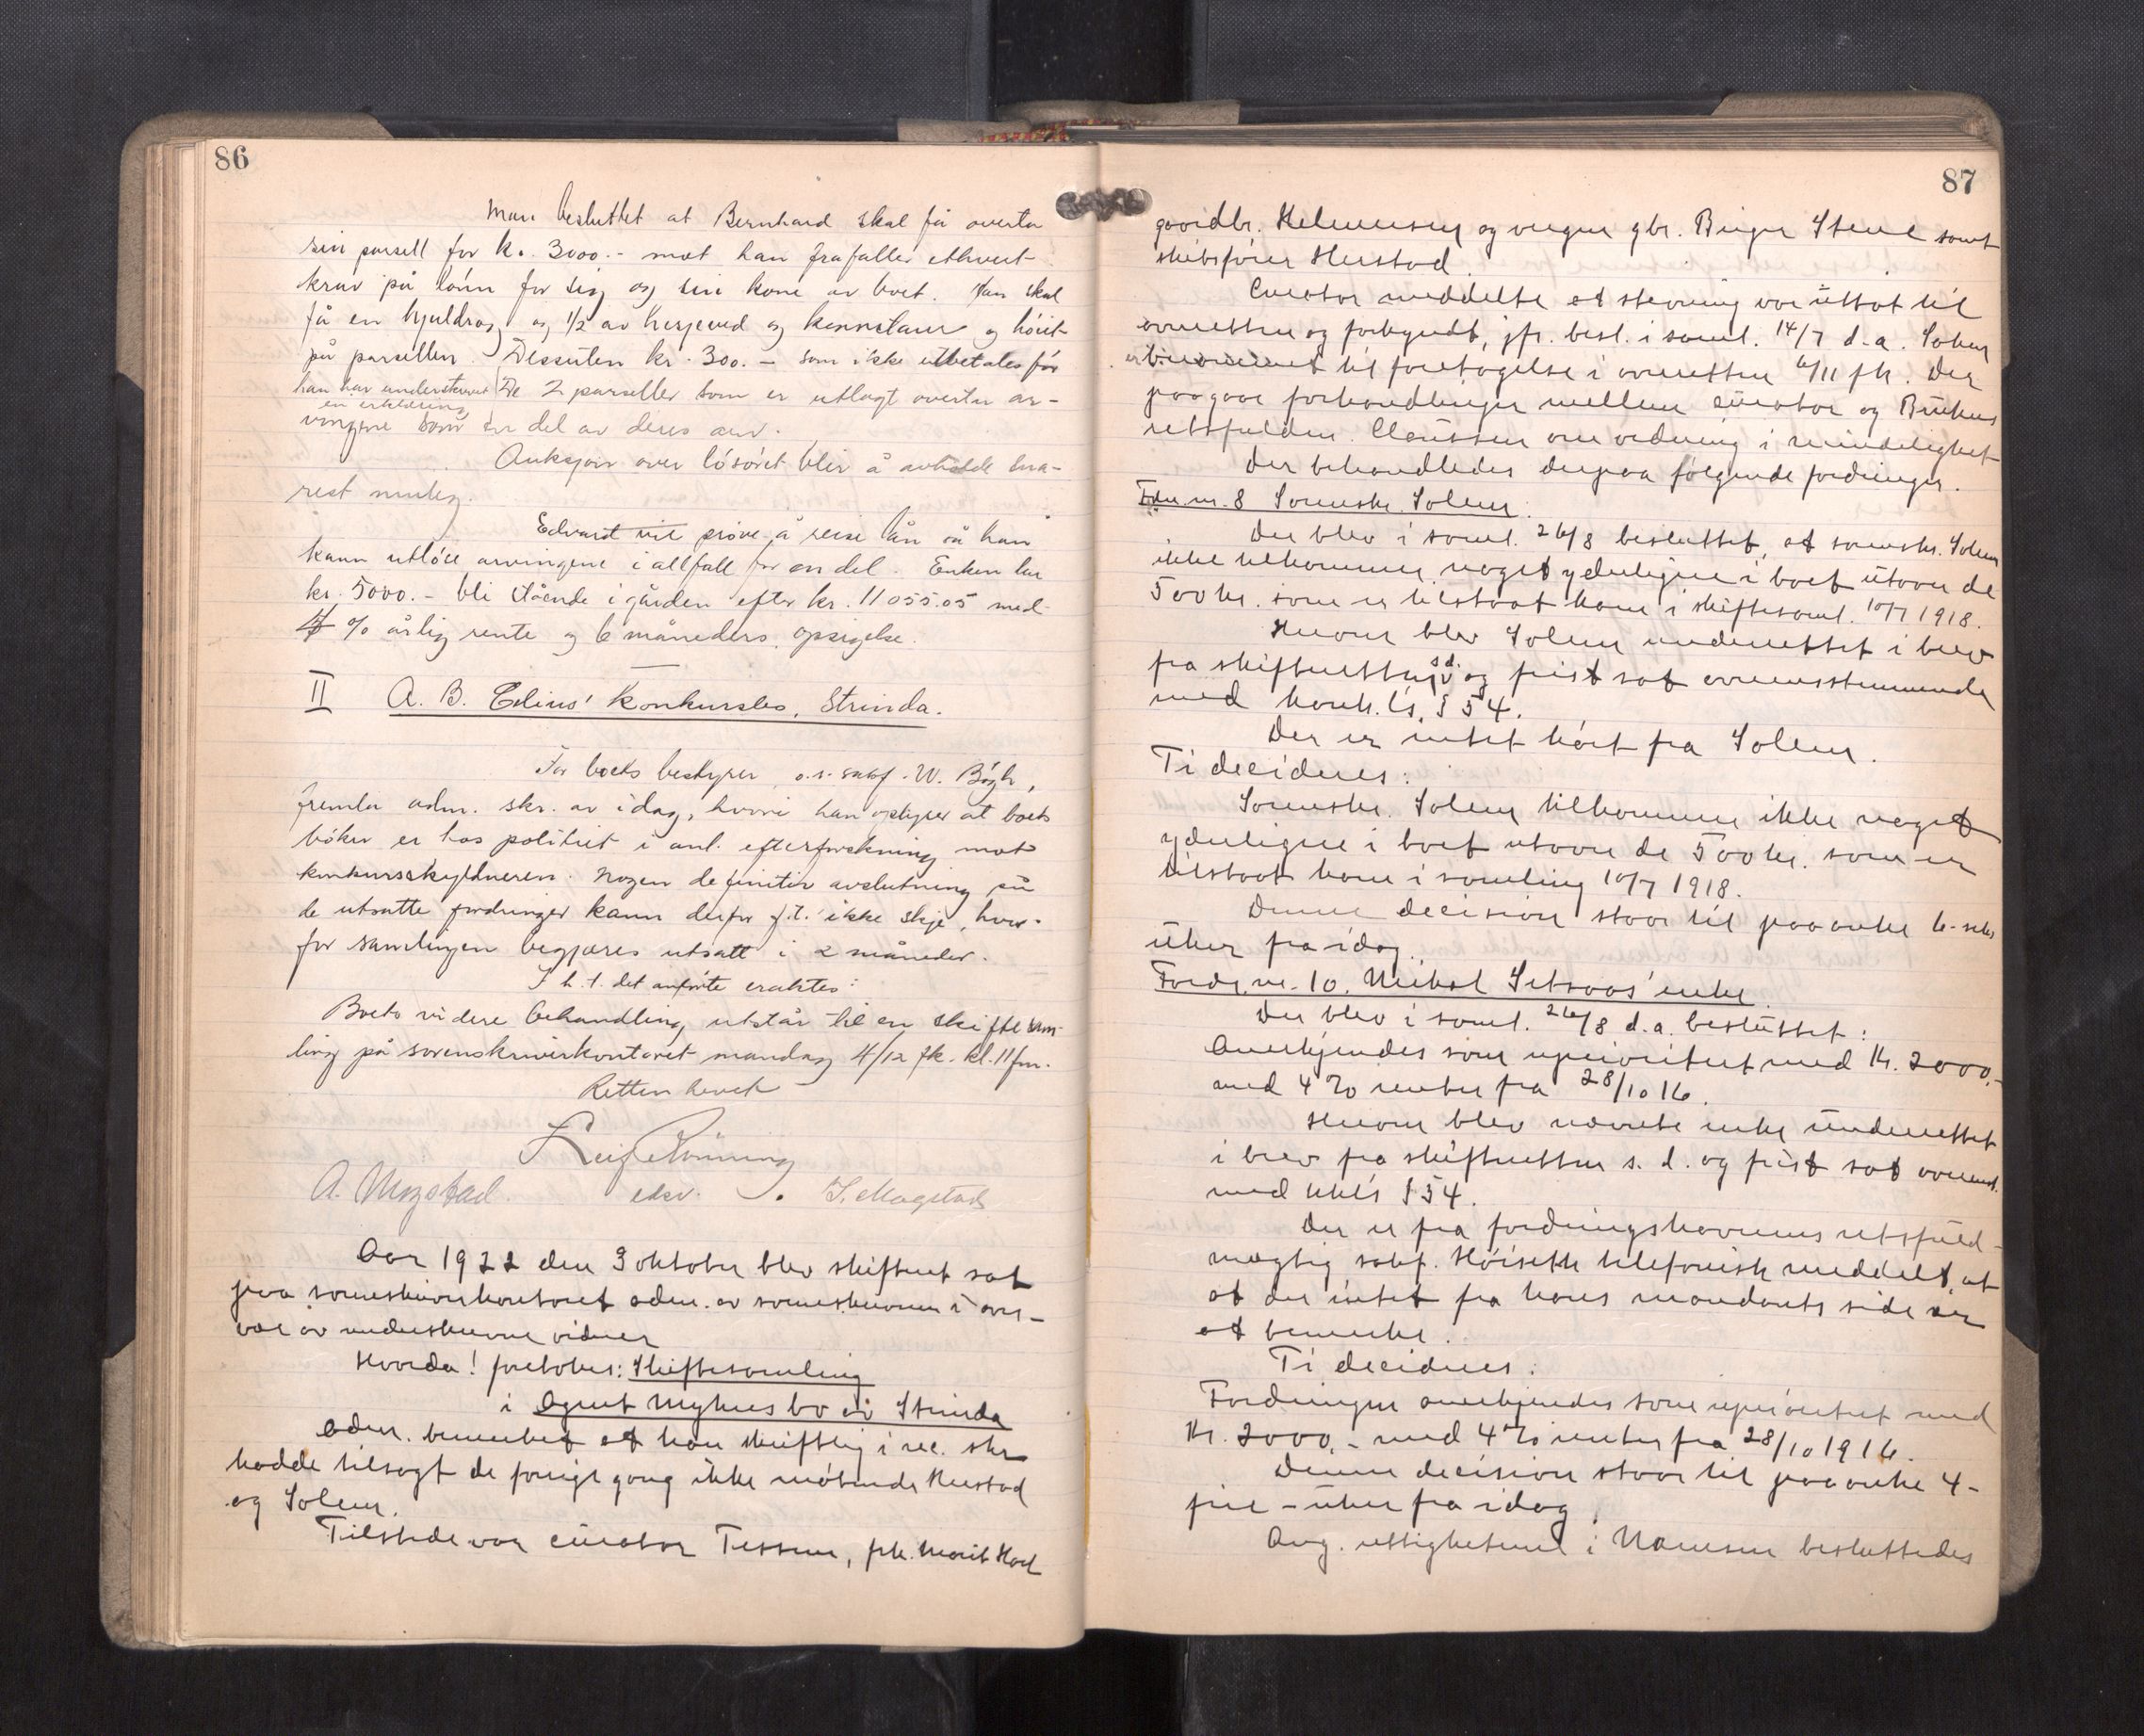 86
Man besluttet at Bernhard skal få overta
sin parsell for kr. 3000.- mot han frafaller ethvert
krav på lønn for sig og sin kone av boet. Han skal
få en hjuldrog og 1/2 av hesjeved og høiet
på parsellen. Dessuten kr. 300.- som ikke utbetales før
han har underskrevet De 2 parseller som er utlagt overtar ar-
en erklæring
vingene som en del av deres arv.
Auksjon over løsøret blir å avholde sna-
rest mulig.
Edvard vil prøve å reise lån så han
kann utløse arvingene i allfall for en del. Enken lar
kr. 5000.- bli stående i gården efter kr. 11055.05 med
4 % årlig rente og 6 måneders opsigelse.
II A. B. Edins' Konkursbo, Strinda.
For boets bestyrer, o.r. sakf. W. Bøgh,
fremla adm. skr. av idag, hvori han oplyser at boets
bøker er hos politiet i anl. efterforskning mot
konkursskyldneren. Nogen definitiv avslutning på
de utsatte fordringer kann derfor f.t. ikke skje, hvor-
for samlingen begjæres utsatt i 2 måneder.
I h. t. det anførte eraktes:
Boets videre behandling utstår til en skiftesam-
ling på sorenskriverkontoret mandag 4/12 fk. kl. 11 fm.
Retten hevet
Leif Rønning
A. Mogstad. edsv. S. Mogstad
Aar 1922 den 3 oktober blev skifteret sat
paa sorenskriverkontoret adm. av sorenskriveren i over-
vær av underskrevne vidner
Hvorda! foretokes: Skiftesamling
i Agent Myhres bo av Strinda
Adm. bemerket at han skriftlig i rec. skr.
hadde tilsagt de forrige gang ikke møtende Herstad
og Solem.
Tilstede var curator Tessem, frk. Marit Hoel
87
gaardbr. Helmersen og vergen gbr. Birger Stene samt
skibsfører Herstad.
Curator meddelte at stevning var uttat til
overretten og forkyndt, jfr. besl. i saml. 14/7 d.a. Saken
er berammet til foretagelse i overretten 6/11 fk. Der
paagaar forhandlinger mellem curator og Brukens
retsfuldm. Claussen om ordning i mindelighet
Der behandledes derpaa følgende fordringer.
Fdr. nr. 8 Sorenskr. Solem.
Der blev i saml. 26/8 besluttet, at sorenskr. Solem
ikke tilkommer noget yderligere i boet utover de
500 kr. som er tilstaat ham i skiftesaml. 10/7 1918.
Herom blev Solem underrettet i brev
fra skifteretten s.d. og frist sat overensstemmende
med konk.ls. § 54.
Der er intet hørt fra Solem.
Ti decideres:
Sorenskr. Solem tilkommer ikke noget
yderligere i boet utover de 500 kr. som er
tilstaat ham i samling 10/7 1918.
Denne decision staar til paaanke 6-seks
uker fra idag.
Fordr. nr. 10. Mikal Setsaas' enke.
Der blev i saml. 26/8 d.a. besluttet:
Anerkjendes som uprioritert med Kr. 2000.-
med 4 % renter fra 28/10 16.
Herom blev nævnte enke underrettet
i brev fra skifteretten s. d. og frist sat overenst.
med kkls § 54.
Der er fra fordringshaverens retsfuld-
mægtig sakf. Høiseth telefonisk meddelt, at
at der intet fra hans mandants side er
at bemerke.
Ti decideres:
Fordringen anerkjendes som uprioritert med
Kr. 2000.- med 4 % renter fra 28/10 1916.
Denne decision staar til paaanke 4-
fire-uker fra idag
Ang. rettigheten i Namsen besluttedes